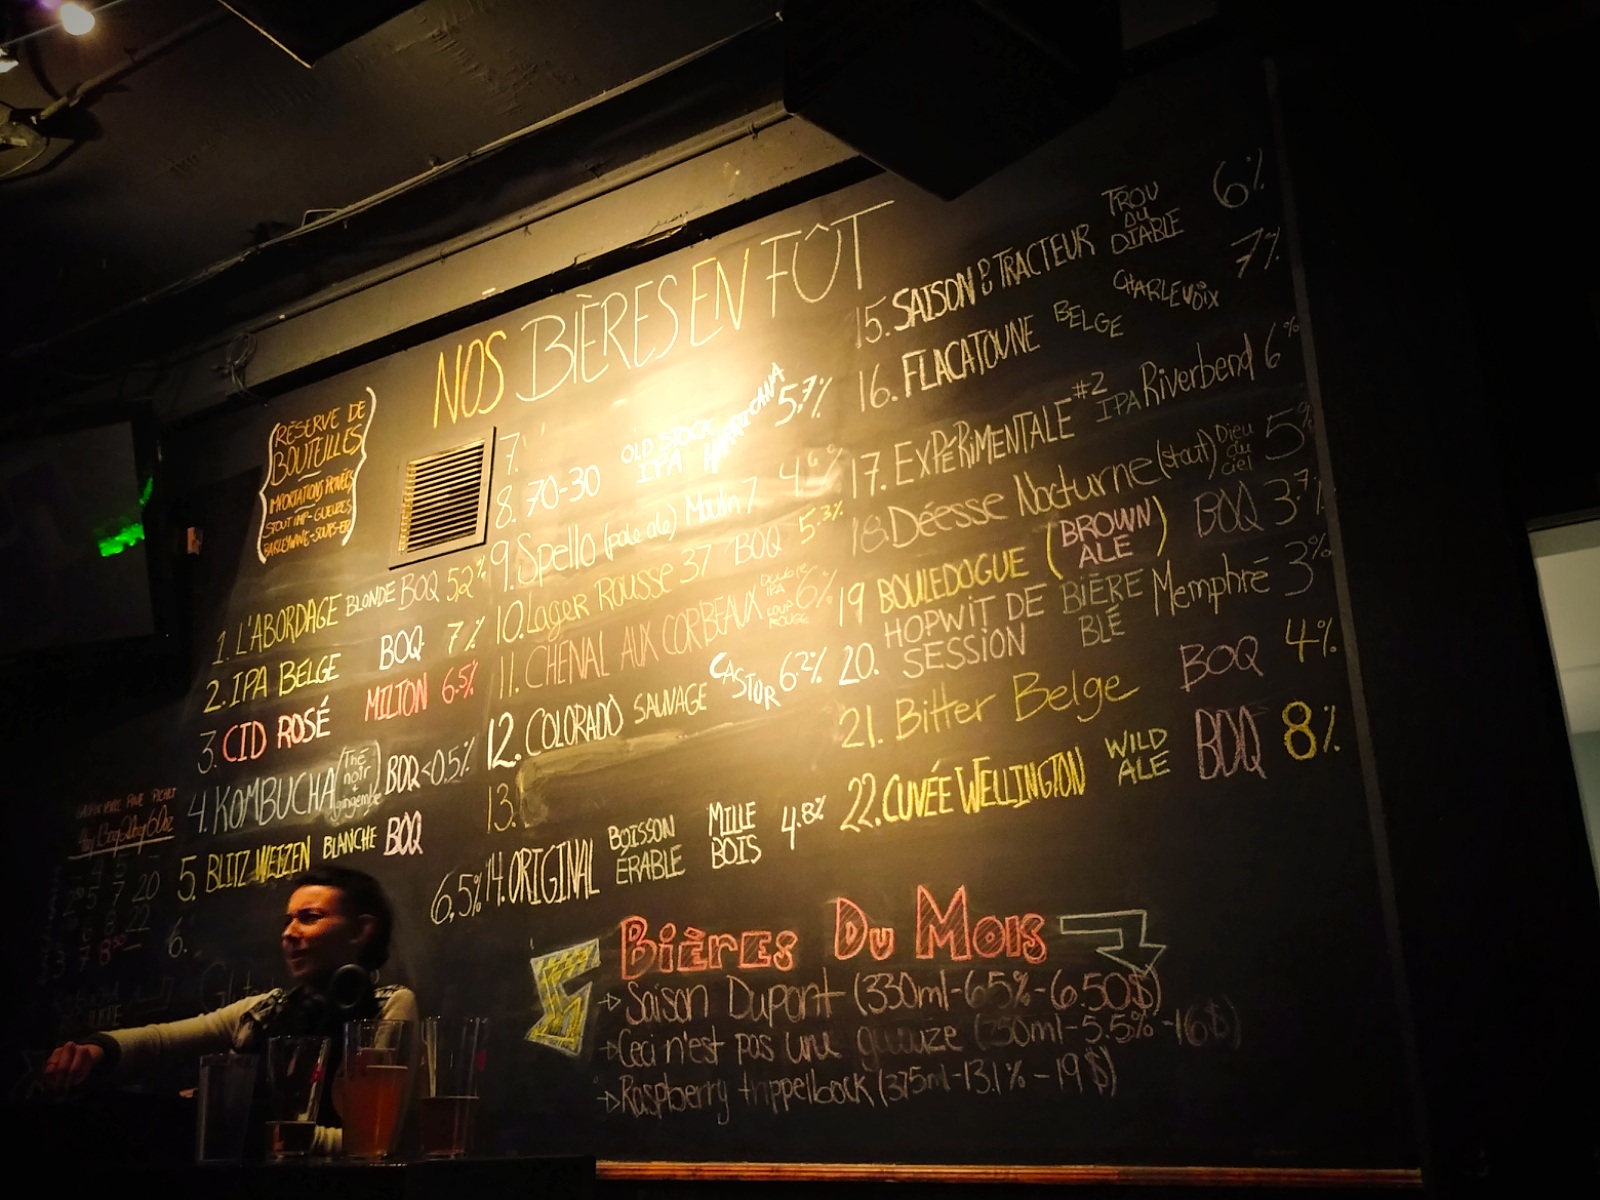 NOS BIÈRES EN FÛT
RÉSERVE DE
BOUTEILLES
IMPORTATIONS PRIVÉES
STOUT IMP-GUEUZES
BARLEYWINE-SOURS-ER
1. L'ABORDAGE BLONDE BOQ 5,2%
2. IPA BELGE BOQ 7%
3. CID ROSÉ MILTON 6.5%
4. KOMBUCHA (Thé noir + gingembre) BOQ <0.5%
5. BLITZ WEIZEN BLANCHE BOQ
6,5%
6.
7.
8. 70-30 OLD STOCK IPA HARRICANA 5.7%
9. Spello (pale ale) Moulin 7 4%
10. Lager Rousse 37 BOQ 5.3%
11. CHENAL AUX CORBEAUX DOUBLE IPA LOUP ROUGE 6%
12. COLORADO SAUVAGE CASTOR 6.2%
13.
14. ORIGINAL BOISSON ÉRABLE MILLE BOIS 4.8%
15. SAISON DU TRACTEUR TROU DU DIABLE 6%
16. FLACATOUNE BELGE CHARLEVOIX 7%
17. EXPÉRIMENTALE #2 IPA Riverbend 6%
18. Déesse Nocturne (stout) Dieu du ciel 5%
19 BOULEDOGUE (BROWN ALE) BOQ 3.7%
20. HOPWIT DE SESSION BIÈRE BLÉ Memphré 3%
21. Bitter Belge BOQ 4%
22. CUVÉE WELLINGTON WILD ALE BOQ 8%
BIÈRES DU MOIS
→ Saison Dupont (330ml-6.5%-6.50$)
→ Ceci n'est pas une gueuze (750ml-5.5%-16$)
→ Raspberry trippelbock (375ml-13.1%-19$)